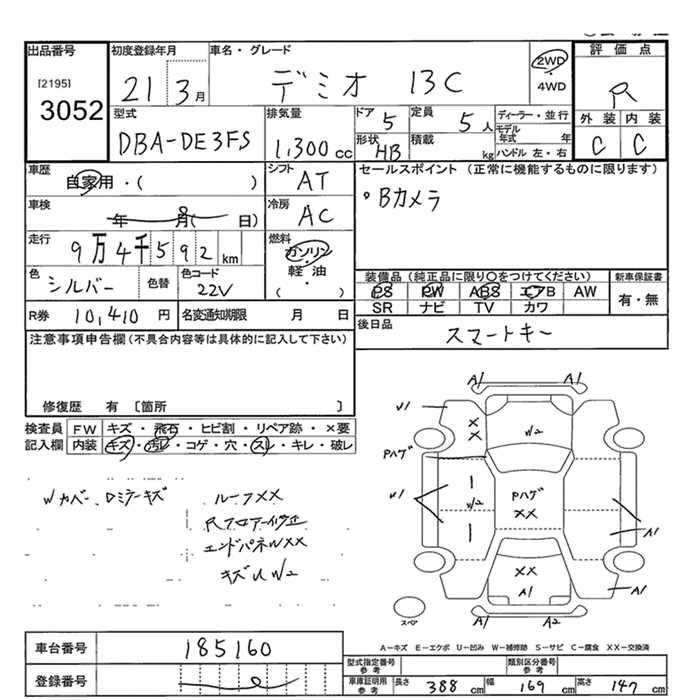 出品番号
[2195]
3052
初度登録年月
21 3月
車名・グレード
デミオ 13C
2WD
・
4WD
評価点
R
外装 内装
C C
型式
DBA-DE3FS
排気量
1,300 cc
ドア 5
定員 5人
形状 HB
積載 kg
ディーラー・並行
モデル年式 年
ハンドル 左・右
車歴
自家用・( )
シフト
AT
セールスポイント (正常に機能するものに限ります)
・Bカメラ
車検
年 月( 日)
冷房
AC
走行
9万4千592km
燃料
ガソリン
・
軽・油
( )
色
シルバー
色替
色コード
22V
装備品(純正品に限り〇をつけてください)
新車保証書
PS PW ABS エアB AW
SR ナビ TV カワ
有・無
R券 10,410 円
名変通知期限 月 日
後日品
スマートキー
注意事項申告欄(不具合内容等は具体的に記入して下さい)
修復歴 有 〔箇所 〕
検査員
記入欄
FW キズ・飛石・ヒビ割・リペア跡・×要
内装 キズ・汚レ・コゲ・穴・スレ・キレ・破レ
Wカバー、Dミラーキズ
ルーフXX
Rフロアー修正
エンドパネルXX
キズU W2
A1 A1
U1
XX
W2
Pハゲ
U1
W2
Pハゲ
XX
A1
XX
A1
A1
スペア
A1 A2
A-キズ E-エクボ U-凹み W-補修跡 S-サビ C-腐食 XX-交換済
車台番号 185160
登録番号
型式指定番号
参考
類別区分番号
参考
車庫証明用
参考
長さ 388 cm 幅 169 cm 高さ 147 cm